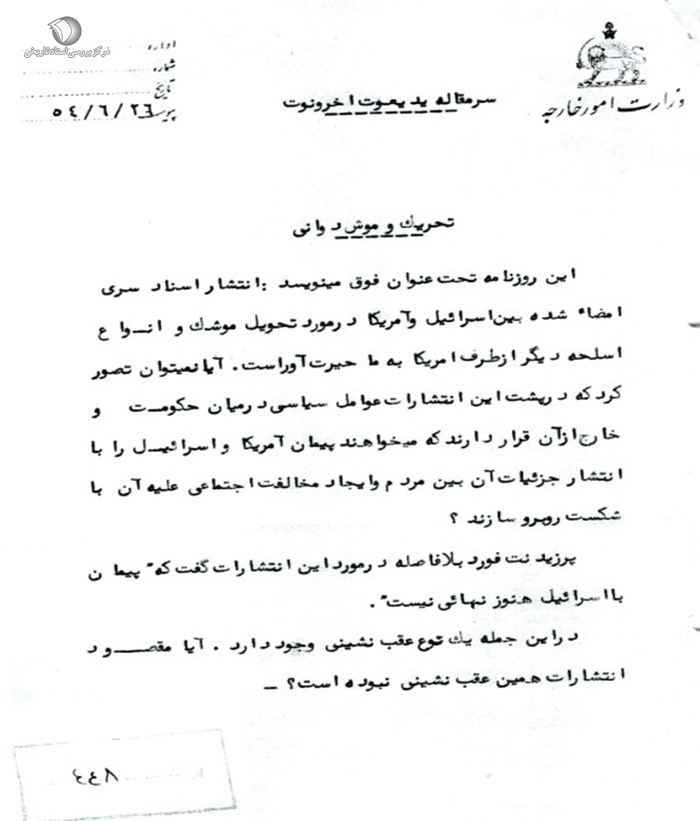 مرکز بررسی اسناد تاریخی
اداره
شماره
تاریخ
۵۴/۶/۲۶
پیوست
وزارت امور خارجه
سرمقاله یدیعوت اخرونوت
تحریك و موش دوانی
این روزنامه تحت عنوان فوق مینویسد : انتشار اسناد سری
امضاء شده بین اسرائیل وآمریکا درمورد تحویل موشك و انـواع
اسلحه دیگر ازطرف امریکا به ما حیرت آوراست . آیا نمیتوان تصور
کرد که درپشت این انتشارات عوامل سیاسی درمیان حکومت و
خارج ازآن قرار دارند که میخواهند پیمان آمریکا و اسرائیـل را با
انتشار جزئیات آن بین مردم وایجاد مخالفت اجتماعی علیه آن با
شکست روبرو سازند ؟
پرزیدنت فورد بلافاصله درمورد این انتشارات گفت که " پیمان
با اسرائیل هنوز نهائی نیست " .
دراین جمله یك نوع عقب نشینی وجود دارد . آیا مقصـود
انتشارات همین عقب نشینی نبوده است؟ ـ
۴۴۸